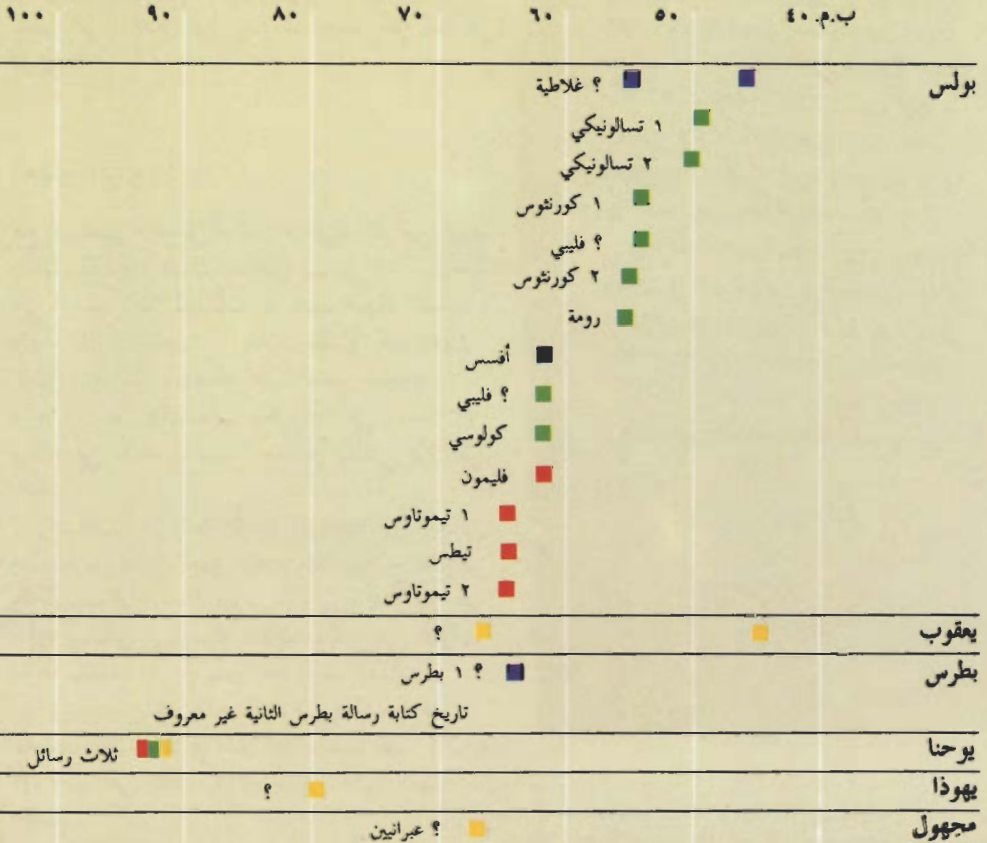 ب.م. ٤٠ ٥٠ ٦٠ ٧٠ ٨٠ ٩٠ ١٠٠
بولس ؟ غلاطية
١ تسالونيكي
٢ تسالونيكي
١ كورنثوس
؟ فليبي
٢ كورنثوس
رومة
أفسس
؟ فليبي
كولوسي
فليمون
١ تيموتاوس
تيطس
٢ تيموتاوس
يعقوب ؟
بطرس ؟ ١ بطرس
تاريخ كتابة رسالة بطرس الثانية غير معروف
يوحنا ثلاث رسائل
يهوذا ؟
مجهول ؟ عبرانيين